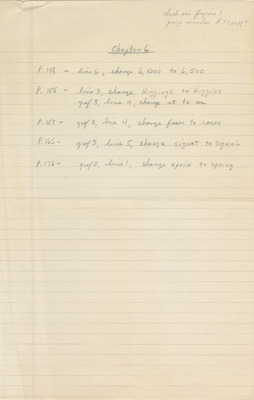 check on figures!
page number
Chapter 6
P. 148 - line 6, change 6,5000 to 6,500
P. 155 - line 3, change Higgings to Higgins
graf 3, line 11, change at to as
P. 157 - graf 3, line 4, change from to
P. 165 - graf 3, line 5, change signat to signal
P. 176 - graf 2, line 1, change spein to spring